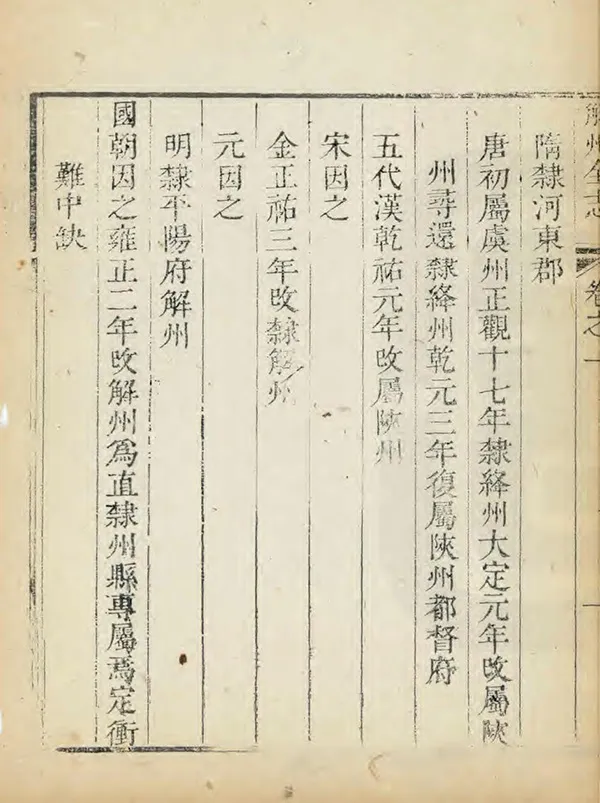 解州全志 卷之一
隋隸河東郡
唐初屬虞州正觀十七年隸絳州大定元年改屬陝
州尋還隸絳州乾元三年復屬陝州都督府
五代漢乾祐元年改屬陝州
宋因之
金正祐三年改隸解州
元因之
明隸平陽府解州
國朝因之雍正二年改解州爲直隸州縣專屬焉定衝
難中缺